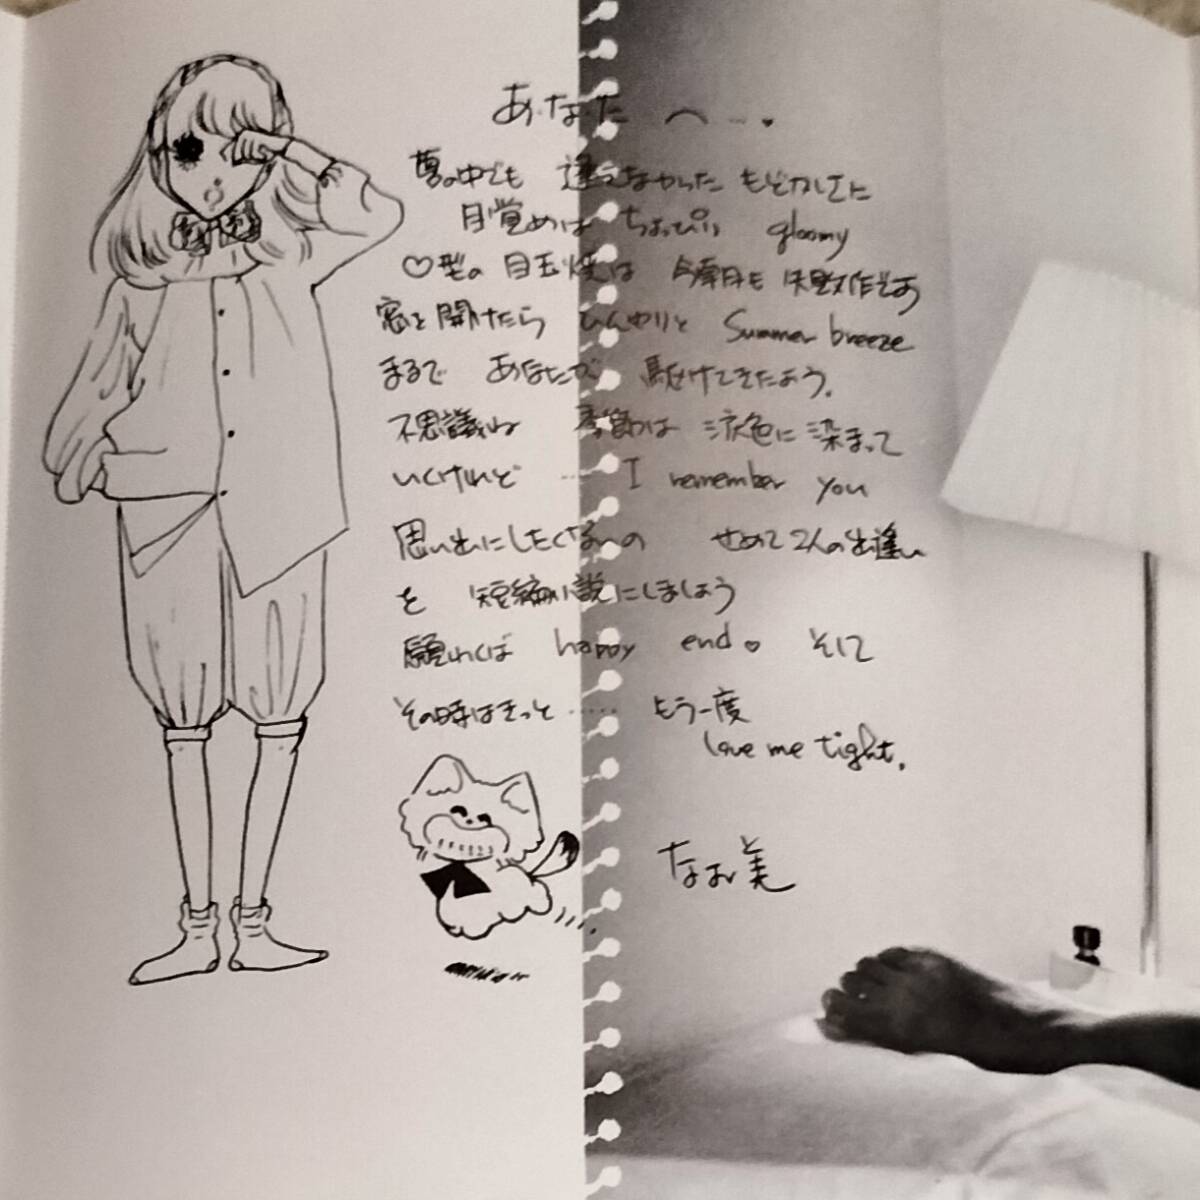 あ・な・た へ…♥
夢の中でも 逢えなかった もどかしさに
目覚めは ちょっぴり gloomy
♡型の 目玉焼は 今朝も 失敗作だわ
窓を 開けたら ひんやりと Summer breeze
まるで あなたが 駆けてきたよう.
不思議ね 季節は 涼色に 染まって
いくけれど … I remember you
思い出にしたくないの せめて 2人の出逢い
を 短編小説にしましょう
願わくば happy end♡ そして
その時はきっと…… もう一度
love me tight.
なお美